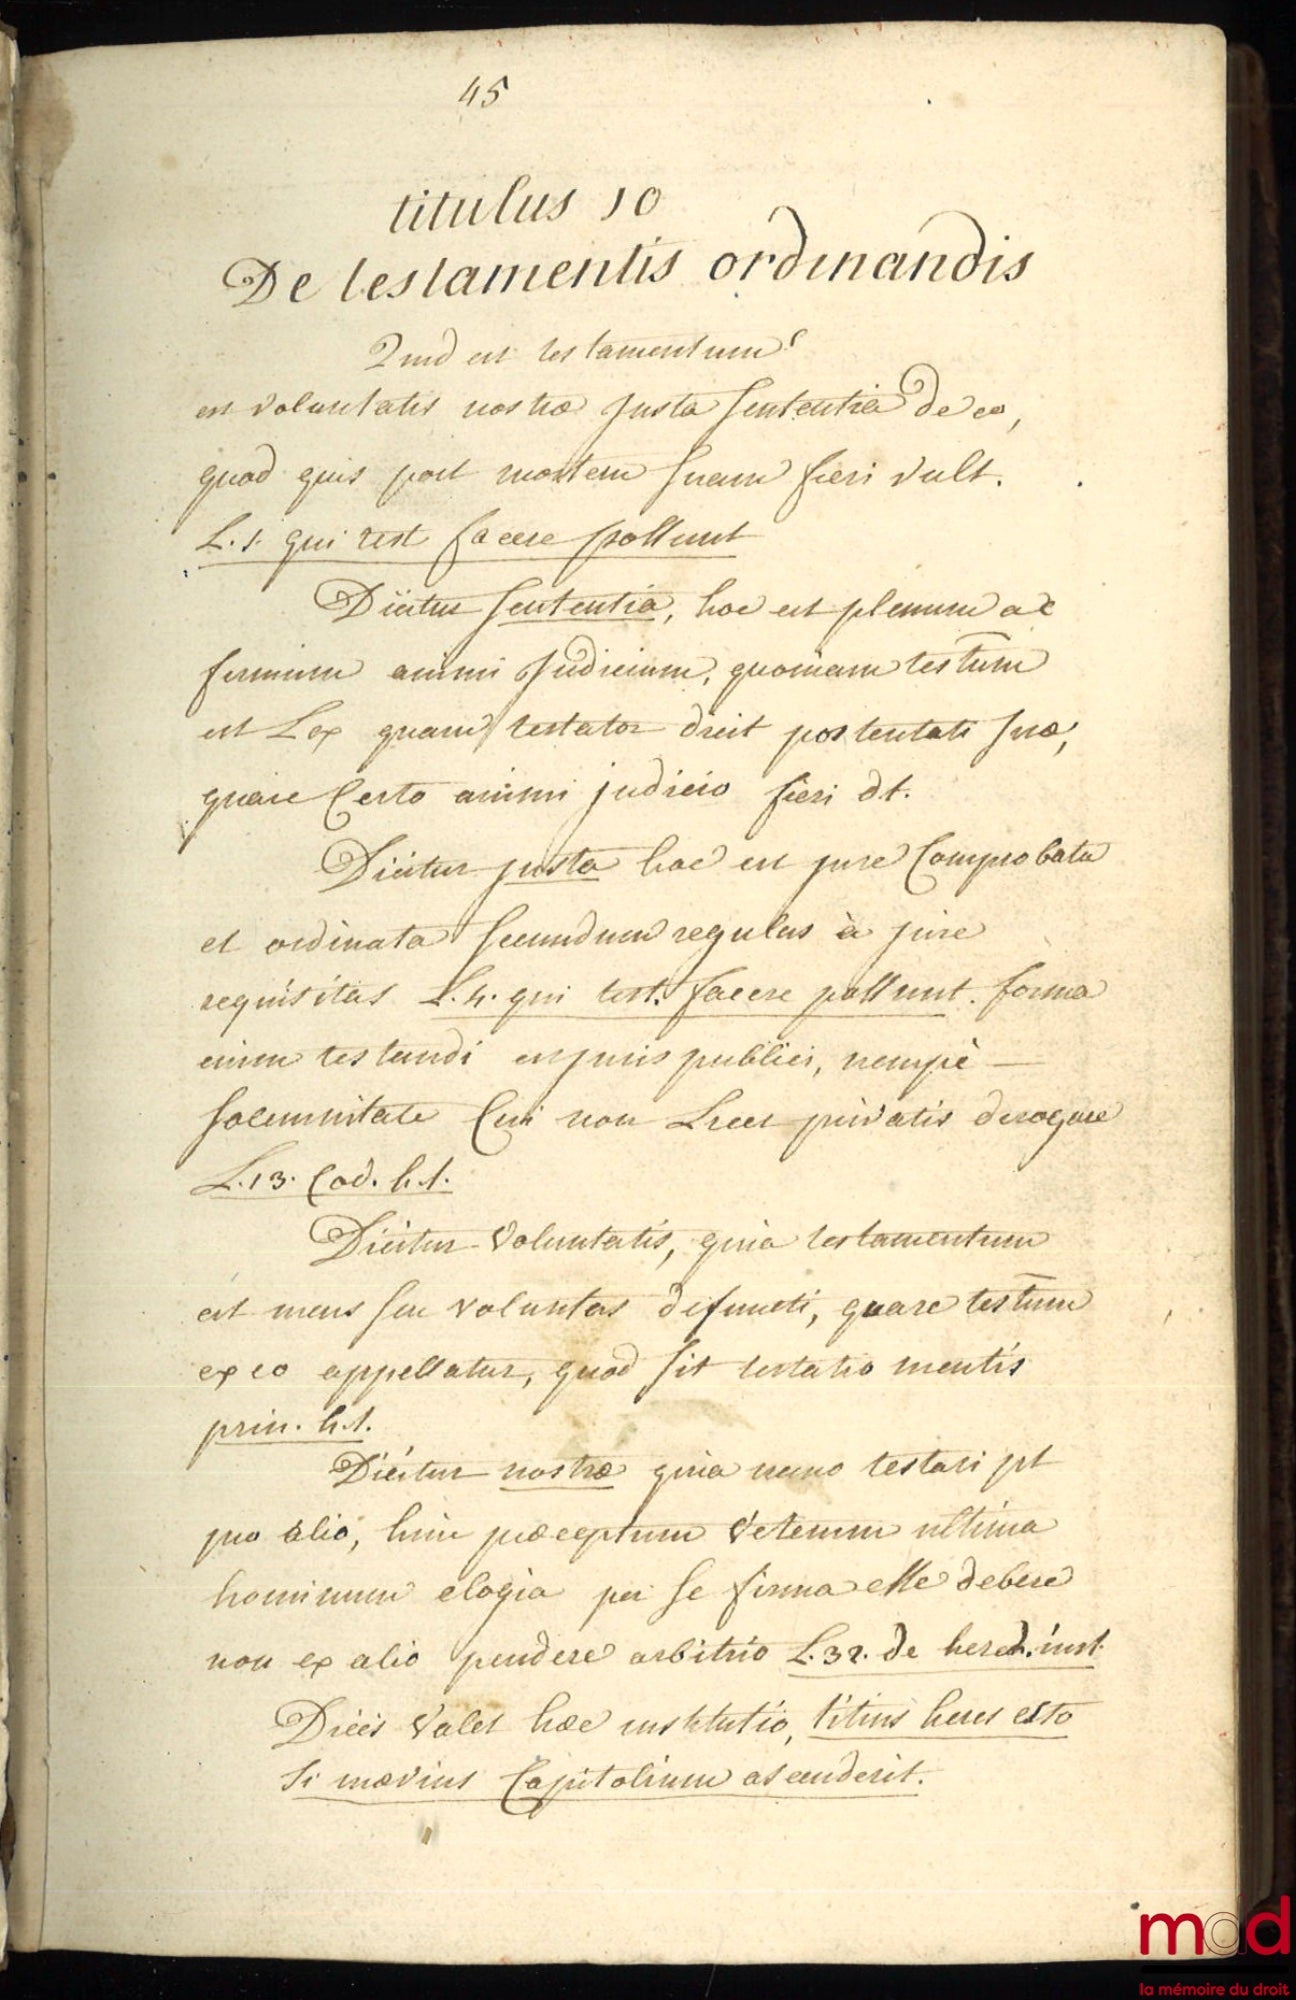 45
titulus 10
De testamentis ordinandis
Quid est testamentum?
est voluntatis nostræ justa sententia de eo,
quod quis post mortem suam fieri vult.
L. 1. qui test facere possunt
Dicitur sententia, hoc est plenum ac
firmum animi judicium, quoniam testum
est Lex quam testator dicit postentati suæ,
quare certo animi judicio fieri dt.
Dicitur justa hoc est jure comprobata
et ordinata secundum regulas à jure
requisitas L. 4. qui test. facere possunt. forma
enim testandi est juris publici, nempè —
solemnitate cui non Licet privatis derogare
L. 13. Cod. h. t.
Dicitur voluntatis, quia testamentum
est mens seu voluntas defuncti, quare testum
ex eo appellatur, quod sit testatio mentis
prin. h. t.
Dicitur nostræ quia nemo testari pt
pro alio, hinc præceptum veterum ultima
hominum elogia per se firma esse debere
non ex alio pendere arbitrio L. 32. de hered. inst.
Dices valet hæc institutio, titius heres esto
si mævius Capitolium ascenderit.
mad
la mémoire du droit